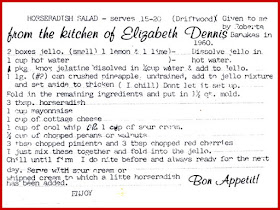 HORSERADISH SALAD - serves 15-20 (Driftwood) Given to me
from the kitchen of Elizabeth Dennis by Roberta
Banukas in
1960.
2 boxes jello, (small) 1 lemon & 1 lime)- Dissolve jello in
1 cup hot water hot water.
1 pkg. knox gelatine dissolved in ½cup water & add to jello.
1 lg. (#2) can crushed pineapple, undrained, add to jello mixture
and set aside to thicken ( I chill) Dnnt let it set up.
Fold in the remaining ingredients and put in 1½ qt. mold.
3 tbsp. horseradish
1 cup mayonnaise
1 cup of cottage cheese
1 cup of cool whip or 1 cup of sour cream.
½ cup of chopped pecans or walnuts
3 tbsp chopped pimiento and 3 tbsp chopped red cherries
I just mix these together and fold into the jello.
Chill until firm I do nite before and always ready for the next
day. Serve with sour cream or
whipped cream to which a little horseradish
has been added. Bon Appetit!
ENJOY